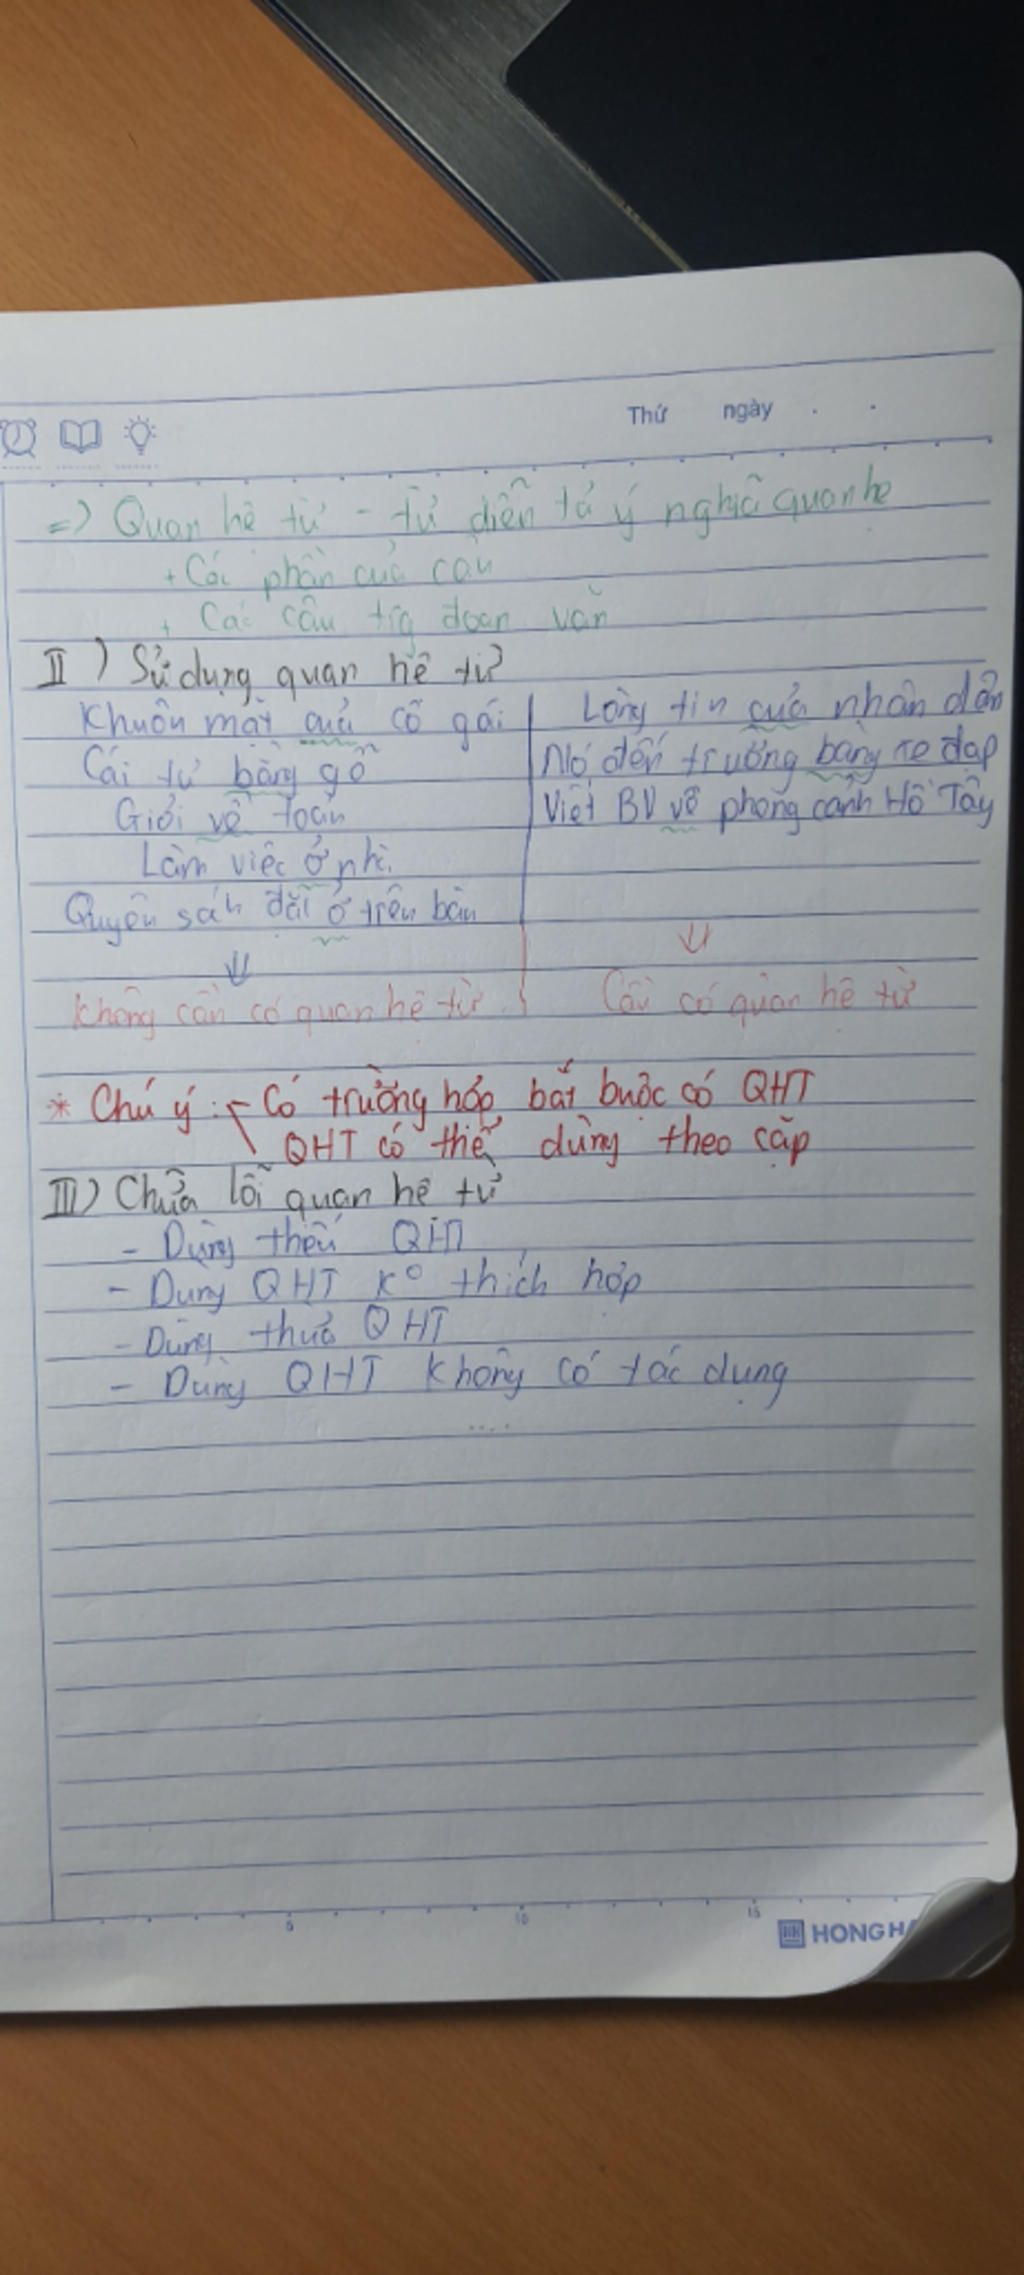 Thứ ngày . .
=> Quan hệ từ - từ diễn tả ý nghĩa quan hệ
+ Các phần của câu
+ Các câu trg đoạn văn
II) Sử dụng quan hệ từ
Khuôn mặt của cô gái
Cái tủ bằng gỗ
Giỏi về toán
Làm việc ở nhà
Quyển sách đặt ở trên bàn
Không cần có quan hệ từ
Lòng tin của nhân dân
Nó đến trường bằng xe đạp
Viết BV về phong cảnh Hồ Tây
Cần có quan hệ từ
* Chú ý: - Có trường hợp bắt buộc có QHT
QHT có thể dùng theo cặp
III) Chữa lỗi quan hệ từ
- Dùng thiếu QHT
- Dùng QHT k° thích hợp
- Dùng thừa QHT
- Dùng QHT không có tác dụng
....
5 10 15
HONG HA